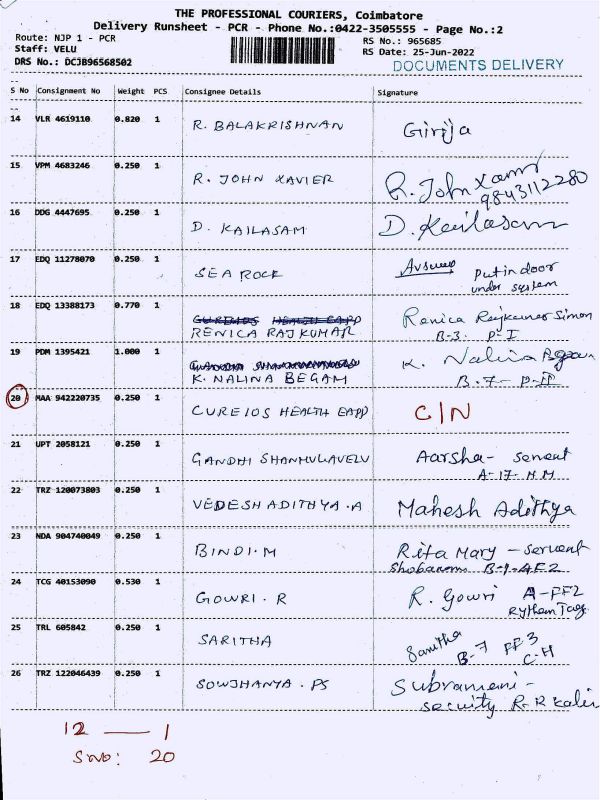 THE PROFESSIONAL COURIERS, Coimbatore
Delivery Runsheet - PCR - Phone No.:0422-3505555 - Page No.:2
Route: NJP 1 - PCR RS No.: 965685
Staff: VELU RS Date: 25-Jun-2022
DRS No.: DCJB96568502 DOCUMENTS DELIVERY
S No Consignment No Weight PCS Consignee Details Signature
14 VLR 4619110 0.820 1 R. BALAKRISHNAN Girija
15 VPM 4683246 0.250 1 R. JOHN XAVIER R. John Xavier
9843112280
16 DDG 4447695 0.250 1 D. KAILASAM D. Kailasam
17 EDQ 11278070 0.250 1 SEAROCK put in door
under system
18 EDQ 13388173 0.770 1 Renica Rajkumar Simon
RENICA RAJKUMAR B-3. P-I
19 PDM 1395421 1.000 1 K. Nalina Begam
K. NALINA BEGAM B-7- P-II
20 MAA 942220735 0.250 1 CUREIOS HEALTH EAPP C/N
21 UPT 2058121 0.250 1 GANDHI SHANMUGAVELU Aarsha- servent
A-17- H.M
22 TRZ 120073803 0.250 1 VEDESH ADITHYA .A Mahesh Adithya
23 NDA 904740049 0.250 1 BINDI.M Rita Mary - servent
B-1-4F2
24 TCG 40153090 0.530 1 GOWRI. R R. Gowri A-FF2
25 TRL 605842 0.250 1 SARITHA Saritha
B-7 FF3
C-H
26 TRZ 122046439 0.250 1 SOWJHANYA . PS Subramani-
security R.R
12 — 1
S No: 20